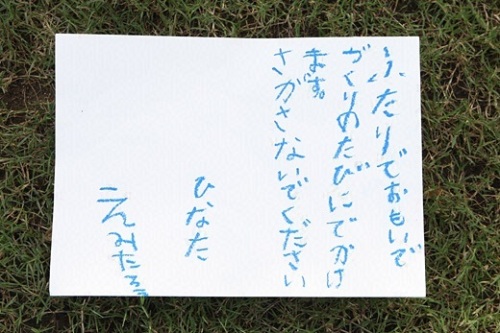 ふたりでおもいで
づくりのたびにでかけ
ます。
さがさないでください
ひなた
えんみたろう